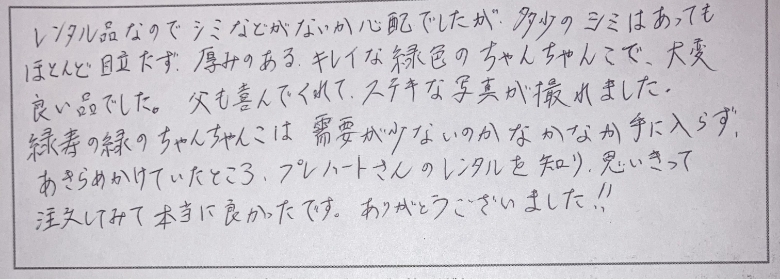 レンタル品なのでシミなどがないか心配でしたが、多少のシミはあっても
ほとんど目立たず、厚みのある、キレイな緑色のちゃんちゃんこで、大変
良い品でした。父も喜んでくれて、ステキな写真が撮れました。
緑寿の緑のちゃんちゃんこは需要が少ないのかなかなか手に入らず、
あきらめかけていたところ、プレハートさんのレンタルを知り、思いきって
注文してみて本当に良かったです。ありがとうございました!!